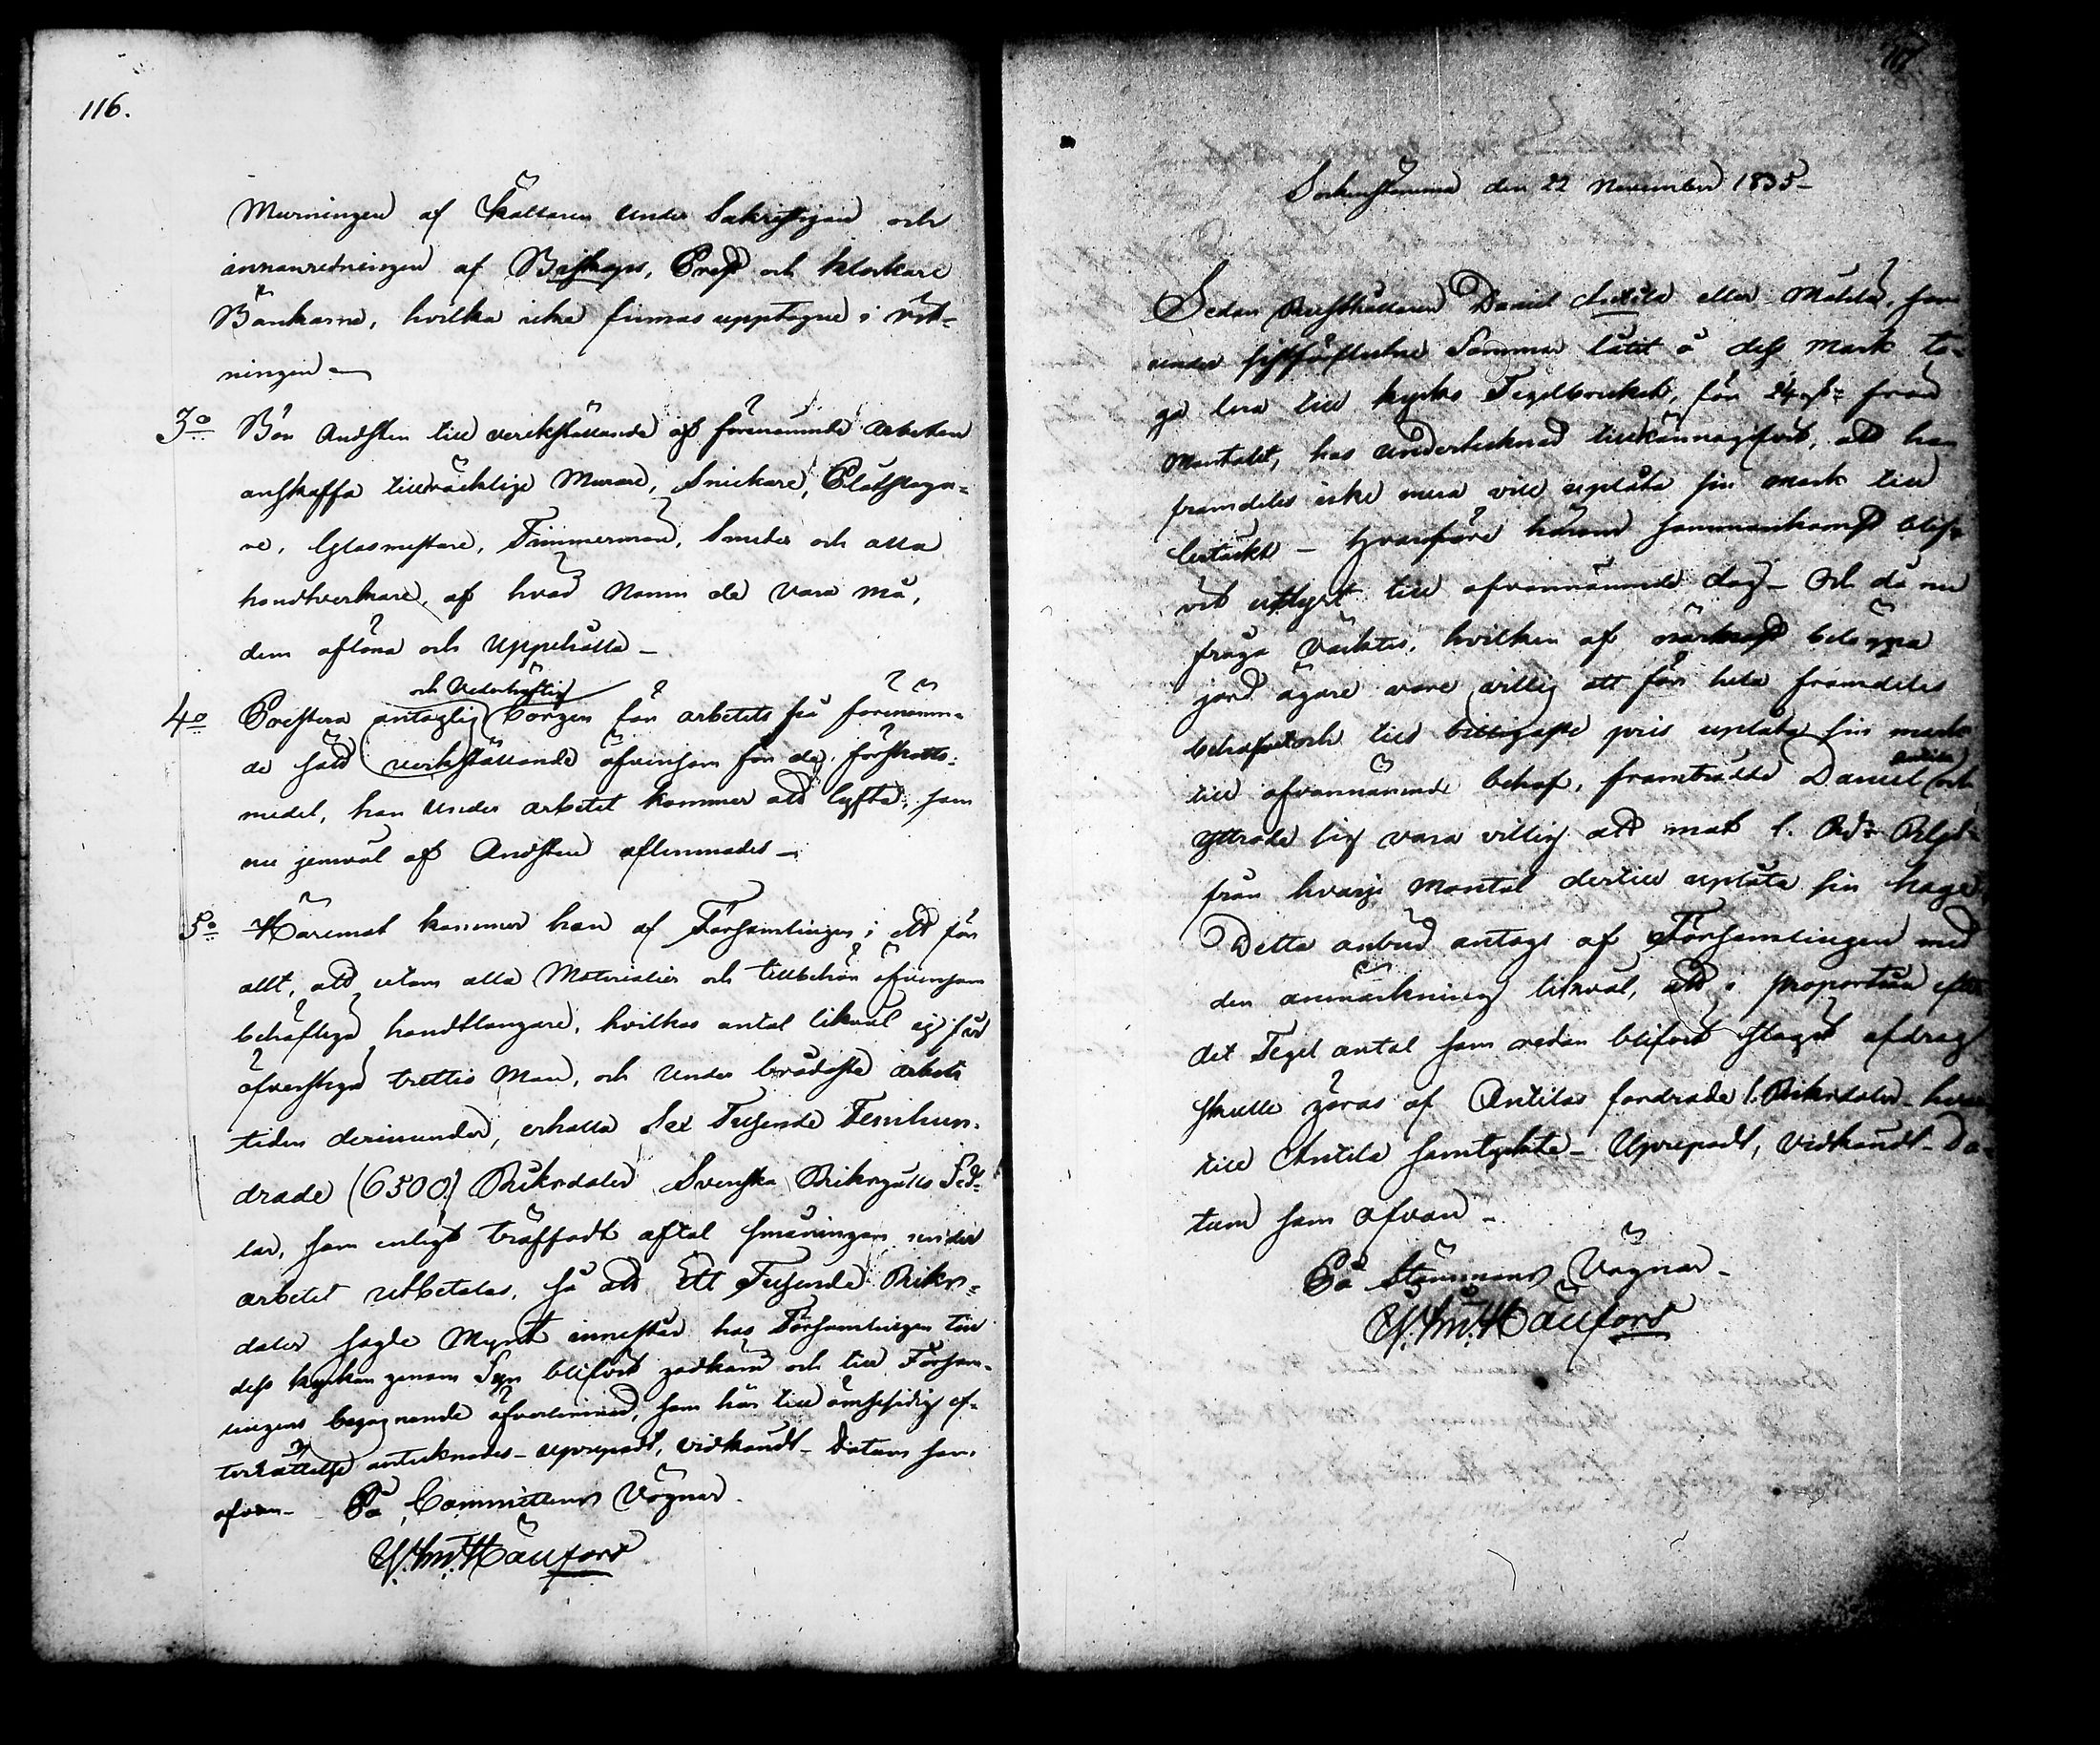 116.
Murningen af Källaren under Sakristijan och
innanredningen af Biskops, Prest och klockare
Bänkarna, hvilka icke finnas upptagne i rit-
ningen —
3:o Bör Andsten till verkställande af förenämnde arbeten
anskaffa tillräcklige Murare, Snickare, Plåtslaga-
re, Glasmästare, Timmermän, Smeder och alla
handtverkare, af hvad Namn de vara må,
dem aflöna och Uppehålla —
och Vederhäftig
4:o Præstera antaglig borgen för arbetets på förenämn-
de sätt verkställande äfvensom för de förskotts-
medel, han under arbetet kommer att lyfta, som
nu jemväl af Andsten aflemnades —
5:o Häremot kommer han af Församlingen i ett för
allt, att utom alla Materialier och tillbehör äfvensom
behöflige handtlangare, hvilkas antal likväl ej får
öfverstiga trettio Man, och under brådaste arbets
tiden derinunder, erhålla Sex Tusende Femhun-
drade (6500) Riksdaler Svenska Riksgälds Sed-
lar, som enligt träffadt aftal småningom under
arbetet utbetalas, så att Ett Tusende Riks-
daler sagde Mynt innestår hos Församlingen till
dess kyrkan genom Syn blifvit godkänd och till Försam-
lingens begagnande öfverlemnad, som här till ömsesidig ef-
terrättelse antecknades – uprepadt, vidkändt – Datum som
ofvan – På Committéens Vägnar
Hällfors

117
Sockenstämma den 22 November 1835 –
Sedan Rusthållaren Daniel Antila eller Mattila, som
under sistförflutne Sommar låtit å dess mark ta-
ga lera till kyrko Tegelbruket, för 24 från
Mantalet, hos undertecknad tillkännagifvit, att han
framdeles icke mera vill uplåta sin mark till
lertäckt – hvarföre härom sammankomst blif-
vit utlyst till ofvannämnde dag – Och då nu
fråga väcktes, hvilken af närmast belägna
jord ägare vore villig att för hela framdeles
behofvet och till billigaste pris uplåta sin mark
Antila
till ofvannämnde behof, framträdde Daniel och
yttrade sig vara villig att mot 1. Rd:r Rgd:s
från hvarje Mantal dertill uplåta sin hage,
Detta anbud antogs af Församlingen med
den anmärkning likväl, att i proportion efter
det Tegel antal som redan blifvit slaget afdrag
skulle göras af Antilas fordrade 1. Riksdaler – hvar
till Antila samtyckte – Uprepadt, vidkändt – Da-
tum som ofvan –
På Stämmans Vägnar –
Hällfors